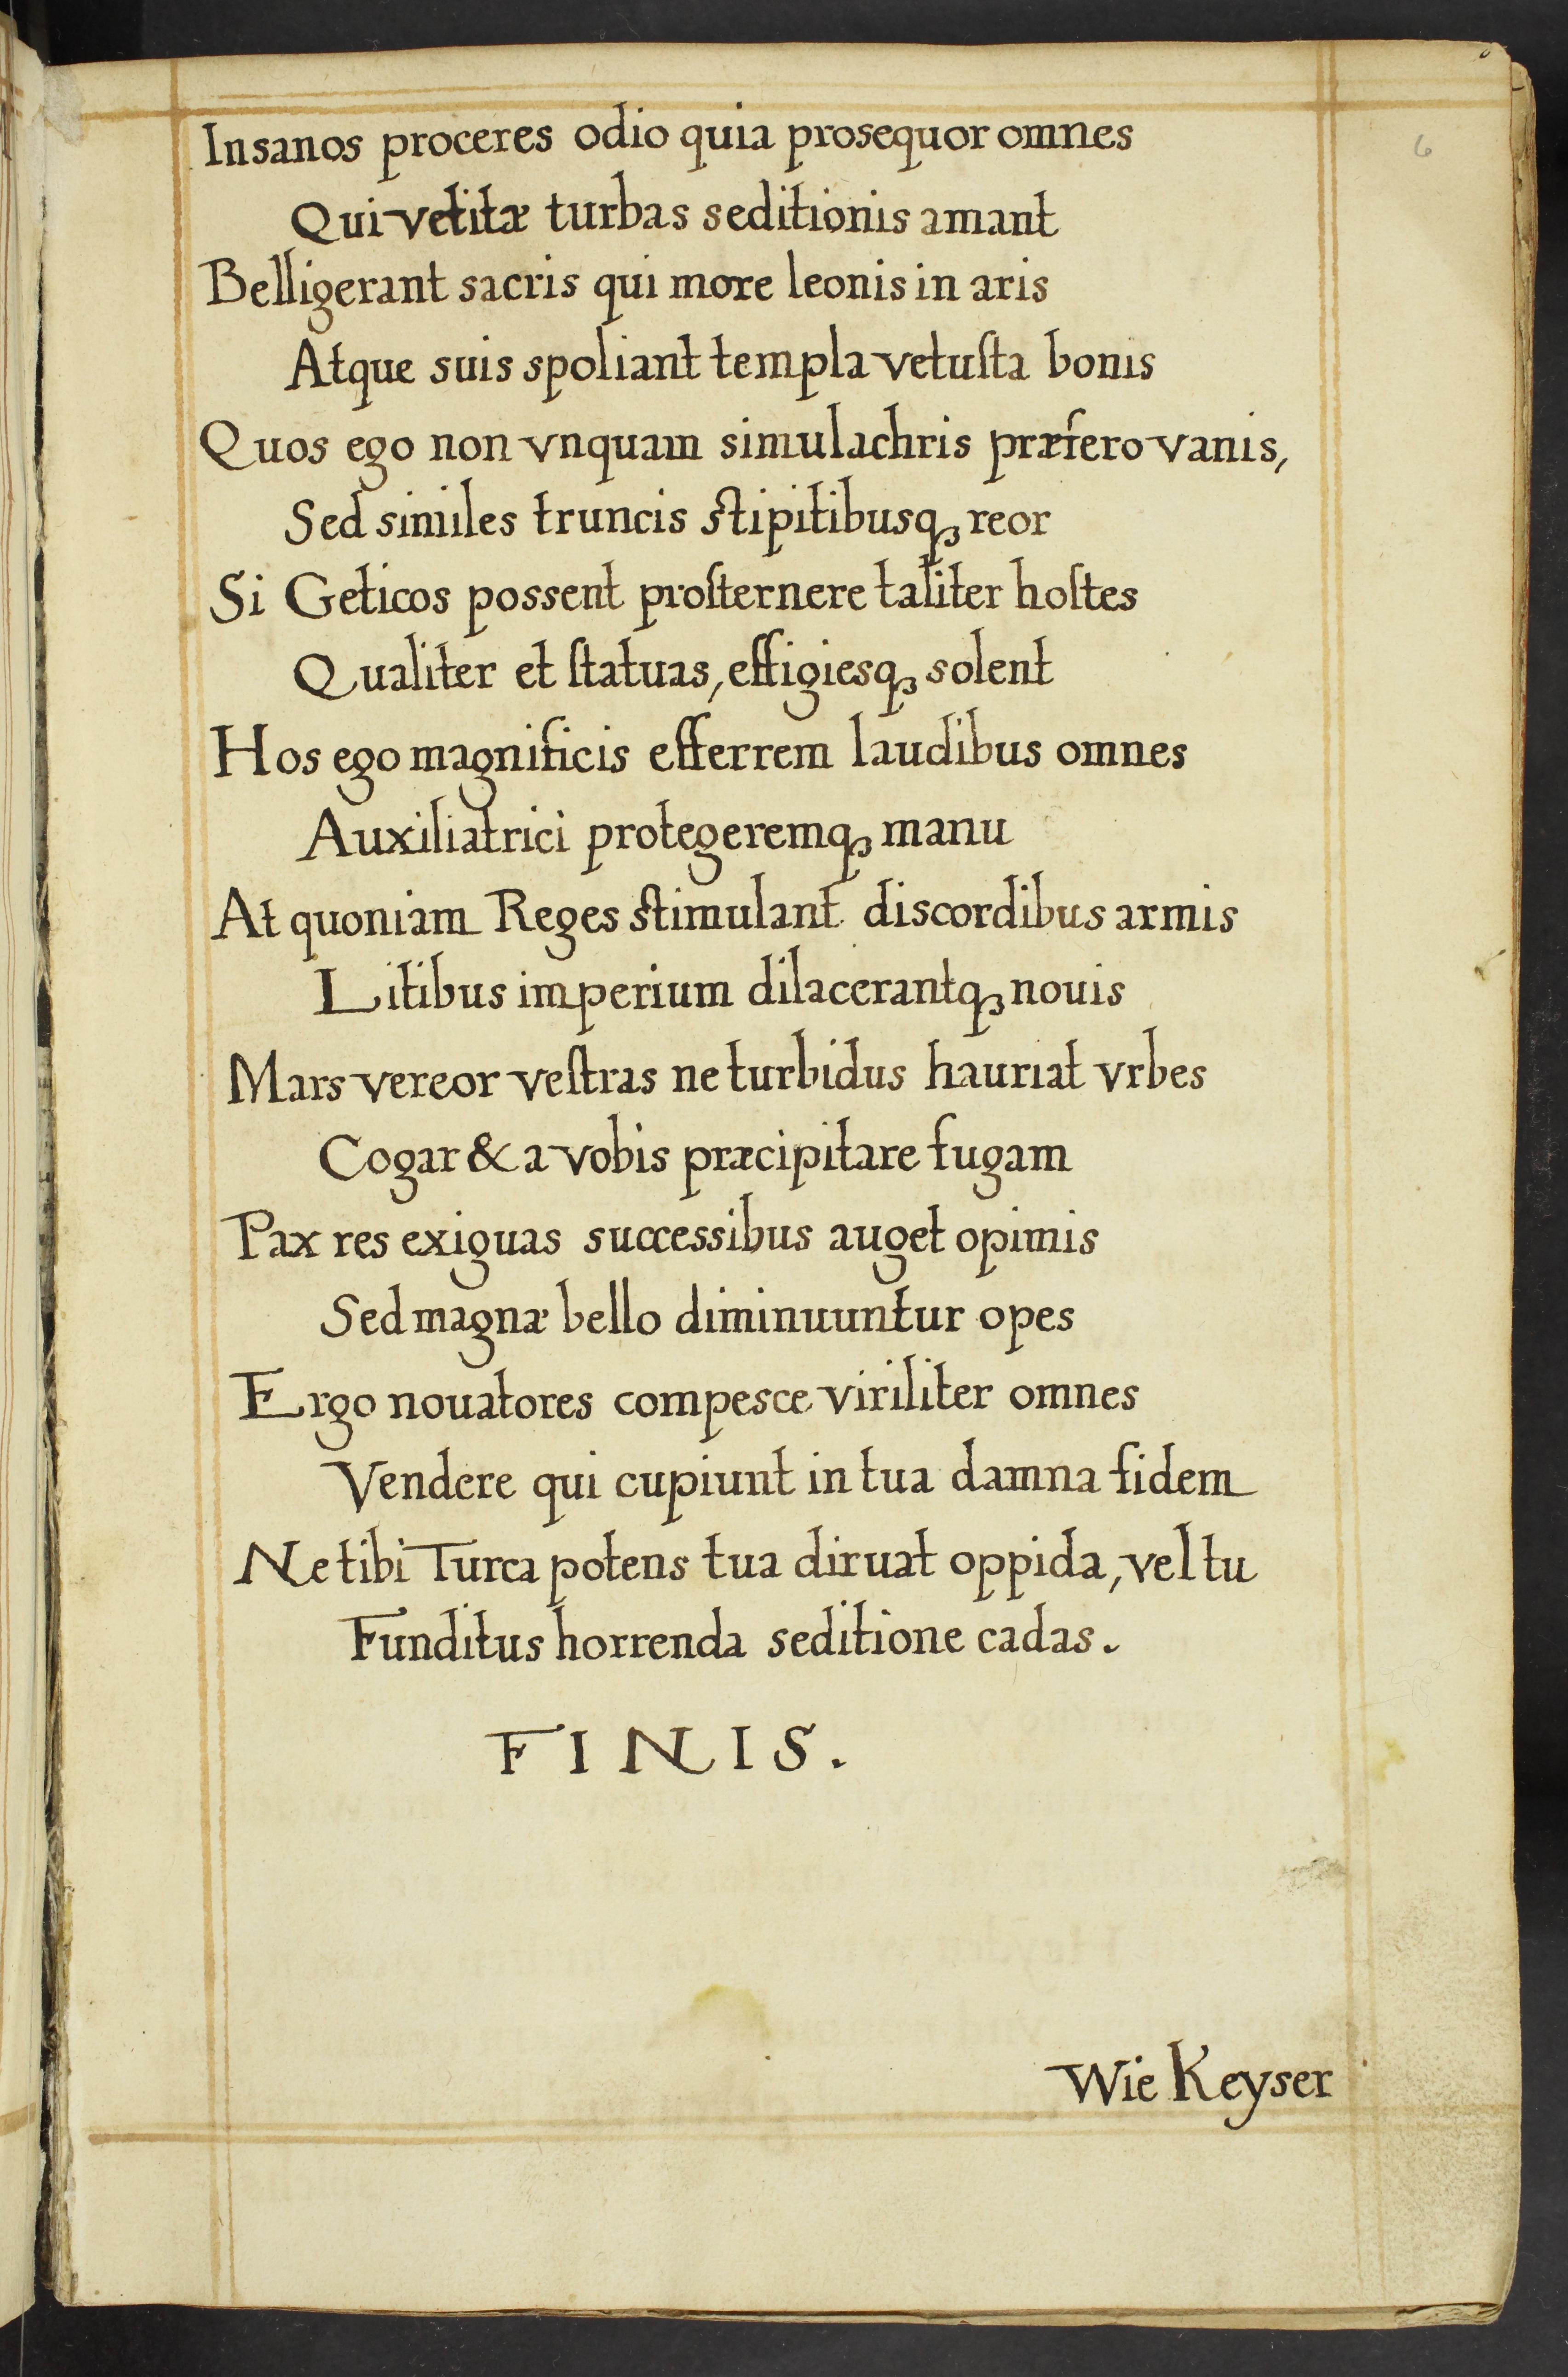 6
Insanos proceres odio quia prosequor omnes
Qui vetitæ turbas seditionis amant
Belligerant sacris qui more leonis in aris
Atque suis spoliant templa vetuſta bonis
Quos ego non vnquam simulachris præfero vanis,
Sed similes truncis ſtipitibusqꝫ reor
Si Geticos possent proſternere taliter hoſtes
Qualiter et ſtatuas, effigiesqꝫ solent
Hos ego magnificis efferrem laudibus omnes
Auxiliatrici protegeremqꝫ manu
At quoniam Reges ſtimulant discordibus armis
Litibus imperium dilacerantqꝫ nouis
Mars vereor veſtras ne turbidus hauriat vrbes
Cogar & a vobis præcipitare fugam
Pax res exiguas successibus auget opimis
Sed magnæ bello diminuuntur opes
Ergo nouatores compesce viriliter omnes
Vendere qui cupiunt in tua damna fidem
Ne tibi Turca potens tua diruat oppida, vel tu
Funditus horrenda seditione cadas.
FINIS.
Wie Keyser